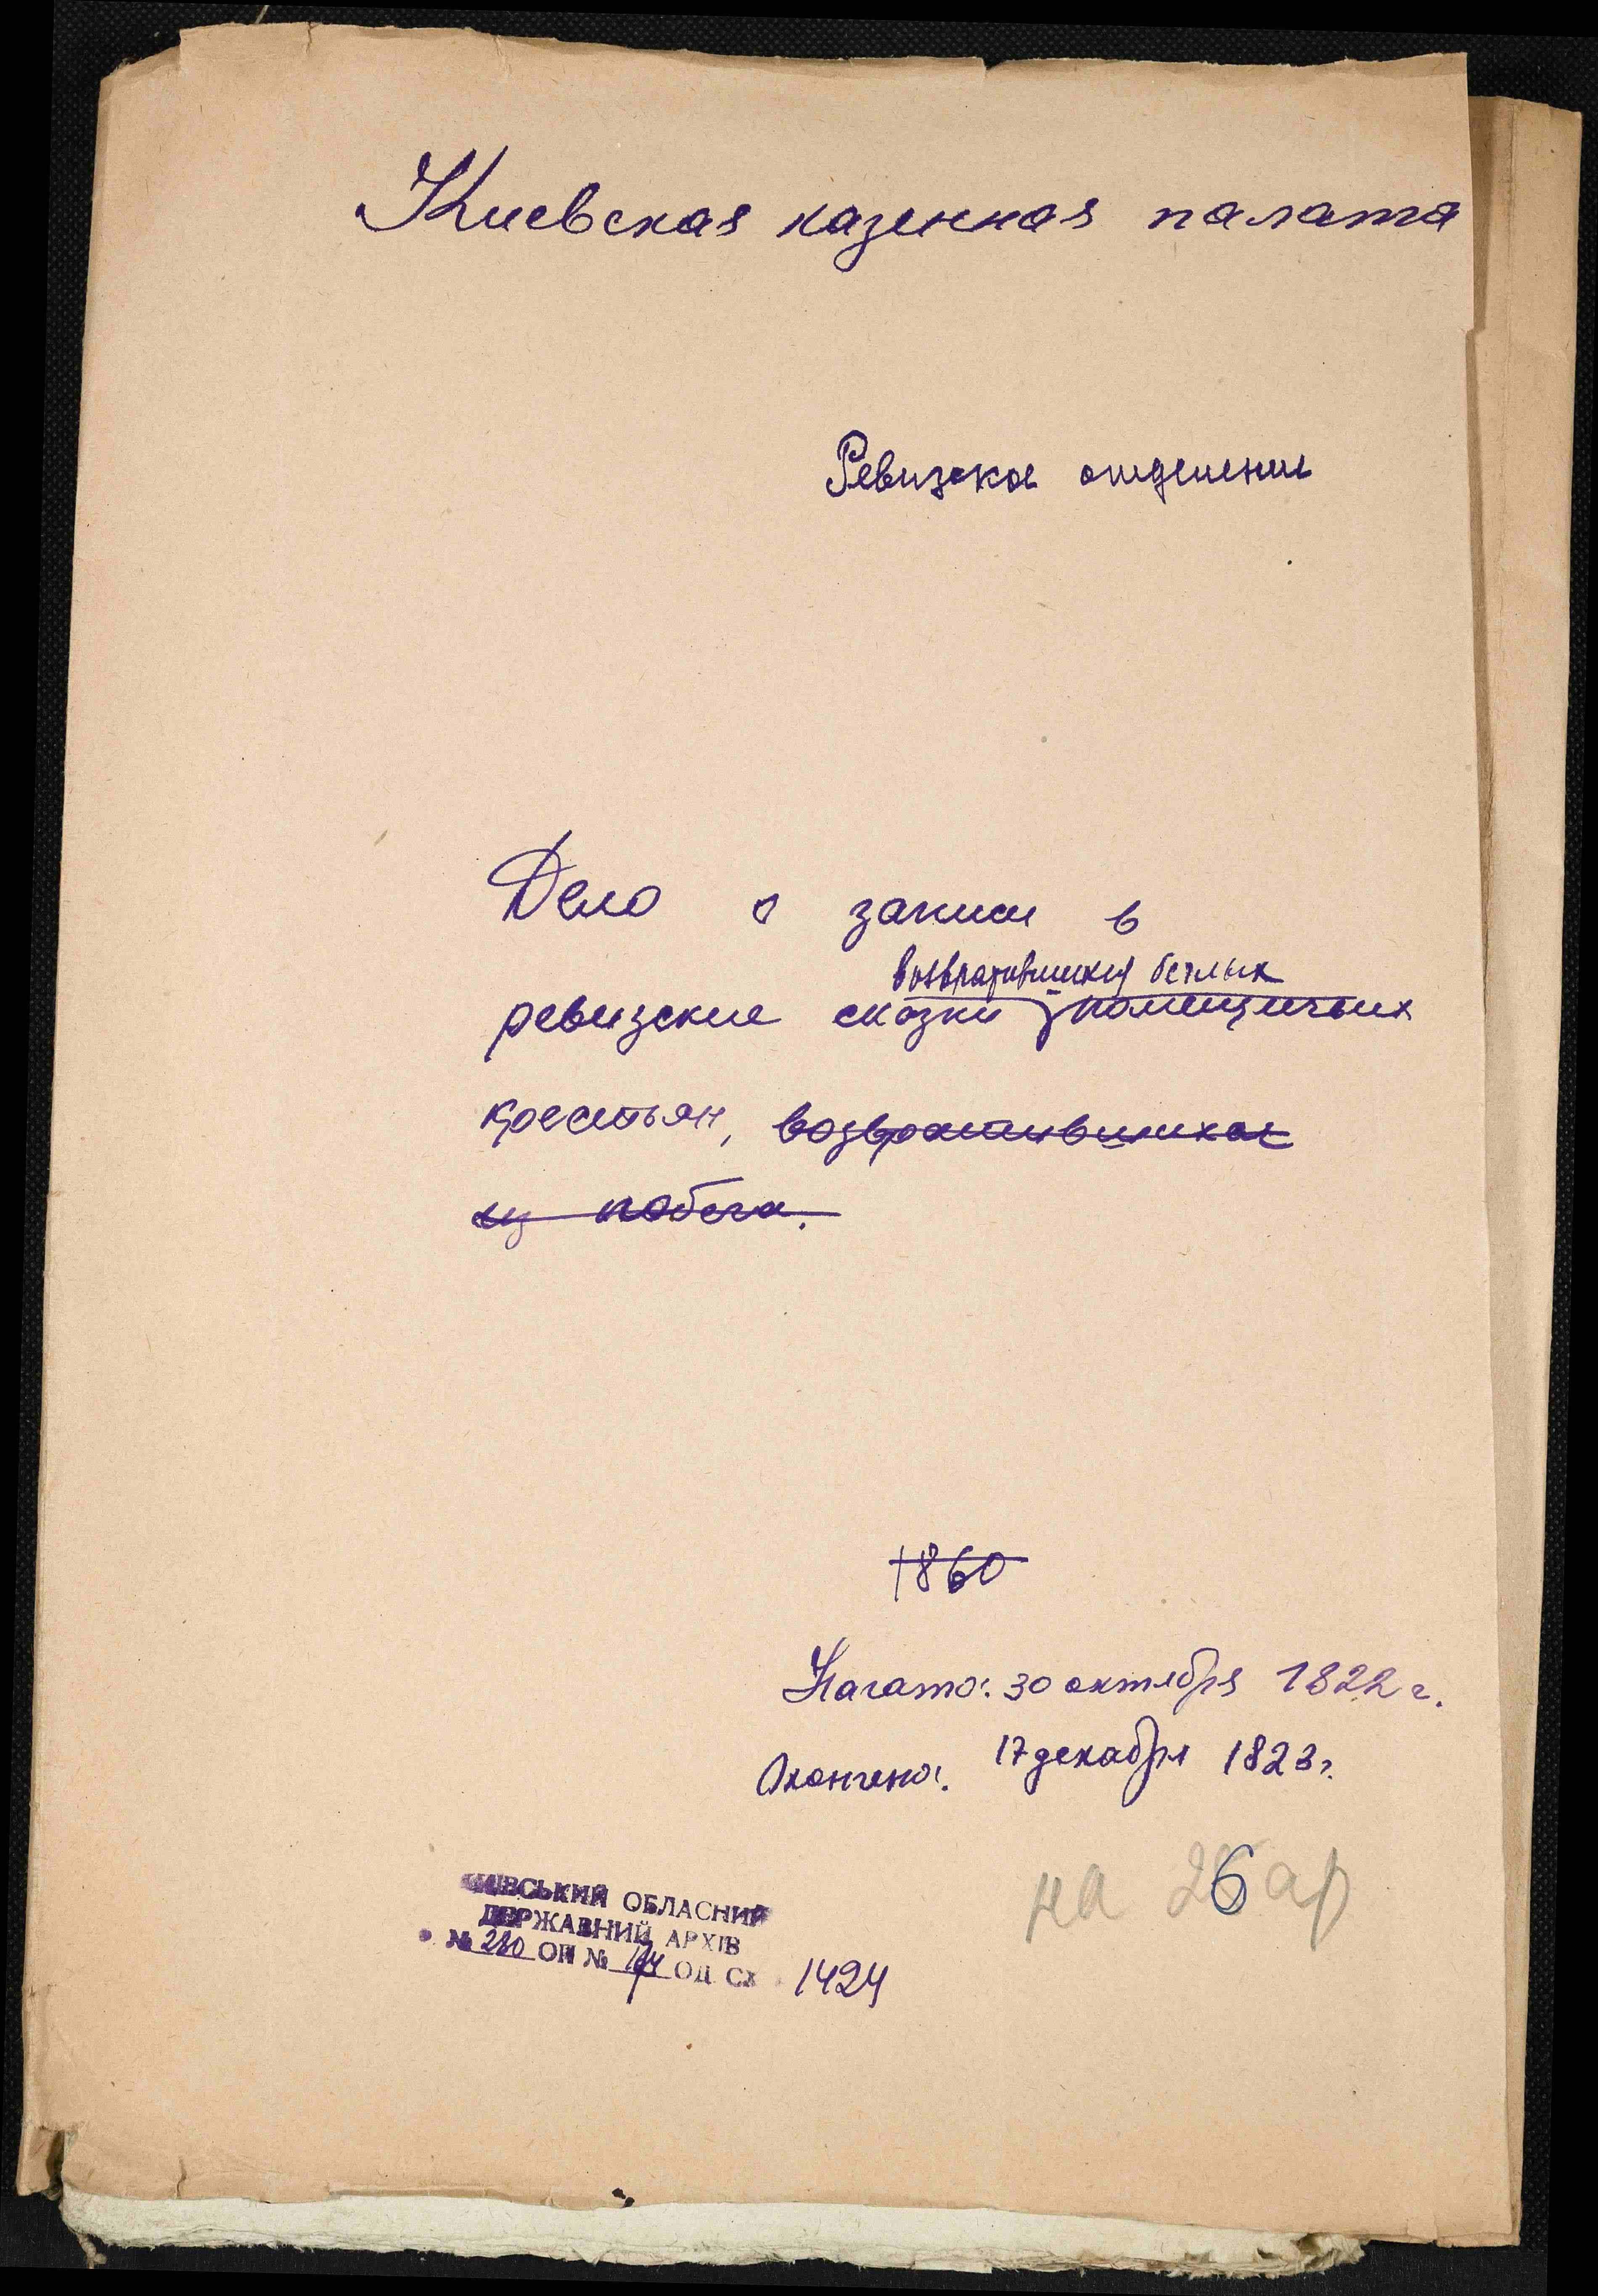 Киевская казенная палата
Ревизское отделение
Дело о записи в
возвратившихся беглых
ревизские сказки помещичьих
крестьян, возвратившихся
из побега.
1860
Начато: 30 октября 1822 г.
Окончено: 17 декабря 1823 г.
на 26 ар
КИЇВСЬКИЙ ОБЛАСНИЙ
ДЕРЖАВНИЙ АРХІВ
№ 280 ОП № 174 ОД. СХ 1424